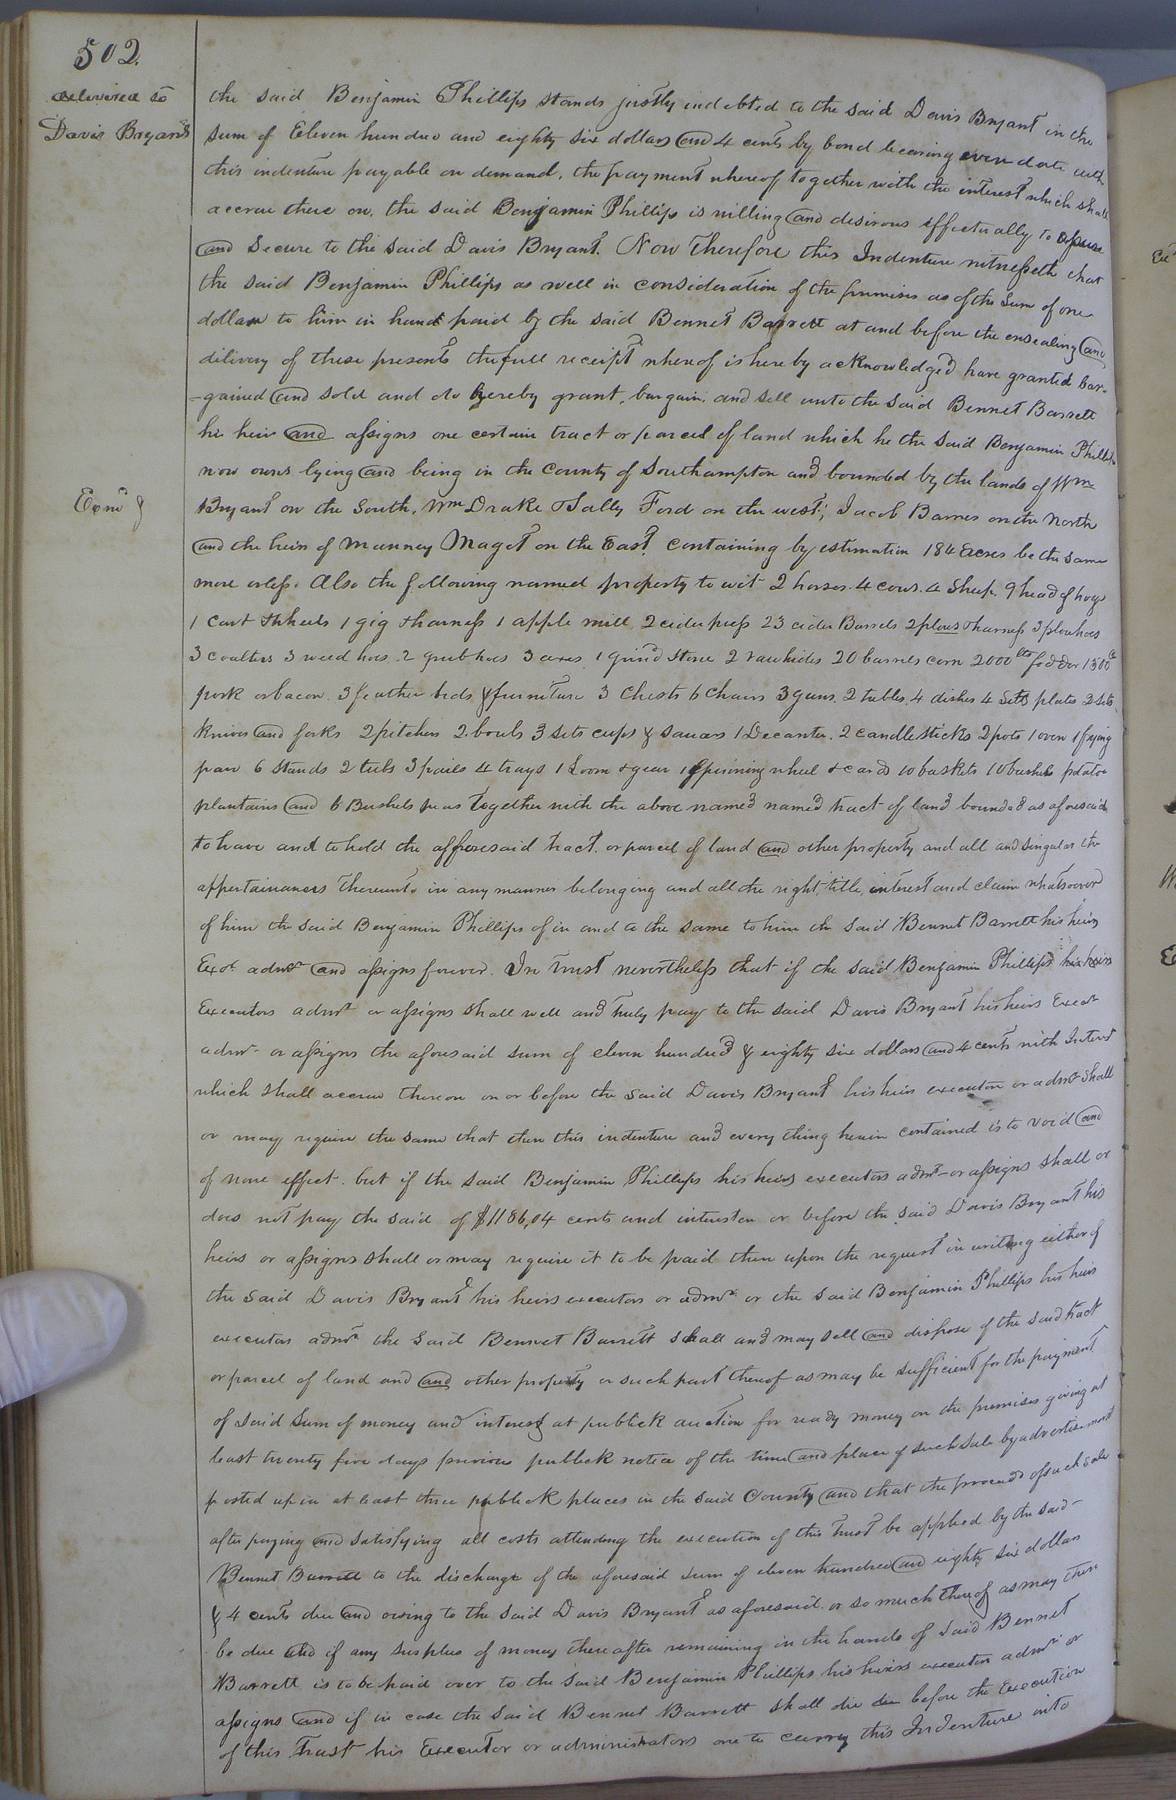 502.
delivered to
Davis Bryant
Exmd
the said Benjamin Phillips stands justly indebted to the said Davis Bryant in the
sum of Eleven hundred and eighty six dollars and 4 cents by bond bearing even date with
this indenture payable on demand, the payment whereof together with the interest which shall
accrue there on, the said Benjamin Phillips is willing and desirous effectually to assure
and Secure to the said Davis Bryant. Now Therefore this Indenture witnesseth that
the said Benjamin Phillips as well in consideration of the premises as of the Sum of one
dollar to him in hand paid by the said Bennet Barrett at and before the ensealing and
delivery of these presents the full receipt whereof is here by acknowledged have granted bar-
-gained and sold and do hereby grant, bargain, and sell unto the said Bennet Barrett
his heirs and assigns one certain tract or parcel of land which he the said Benjamin Phillips
now owns lying and being in the County of Southampton and bounded by the lands of Wm
Bryant on the South, Wm Drake & Sally Ford on the west, Jacob Barnes on the North
and the heirs of Manney Maget on the East, containing by estimation 184 acres be the same
more or less. Also the following named property to wit 2 horses 4 cows 4 Sheep 9 head of hogs
1 cart & wheels 1 gig & harness 1 apple mill 2 cider press 23 cider Barrels 2 plows & harness 3 plow hoes
3 coulters 3 weed hoes 2 grub hoes 3 axes, 1 grind stone 2 raw hides 20 barrels corn 2000 lbs fodder 1500 lbs
pork or bacon 3 feather beds & furniture 3 Chests 6 Chairs 3 guns, 2 tables, 4 dishes 4 Setts plates 2 sets
knives and forks 2 pitchers 2 bowls 3 sets cups & saucers 1 Decanter, 2 candlesticks 2 pots 1 oven 1 frying
pan 6 stands 2 tubs 3 pails 4 trays 1 Loom & gear 1 Spinning wheel & cards 10 baskets 10 bushels potatoe
plantains and 6 Bushels peas together with the above named named tract of land bounded as aforesaid
to have and to hold the afforesaid tract or parcel of land and other property and all and singular the
appertainances thereunto in any manner belonging and all the right, title, interest and claim whatsoever
of him the said Benjamin Phillips of in and to the same to him the said Bennet Barrett his heirs
Exor. admr. and assigns forever. In trust nevertheless that if the said Benjamin Phillips his heirs
Executors admr. or assigns shall well and truly pay to the said Davis Bryant his heirs Execr.
admr. or assigns the aforesaid sum of eleven hundred & eighty six dollars and 4 cents with Interst
which shall accrue thereon on or before the said Davis Bryant his heirs executor or admr. shall
or may require the same that then this indenture and every thing herein contained is to void and
of none effect. but if the said Benjamin Phillips his heirs executors admr. or assigns shall or
does not pay the said of $1186,04 cents and interest on or before the said Davis Bryant his
heirs or assigns shall or may require it to be paid then upon the request in writing either of
the said Davis Bryant his heirs executors or admr. or the said Benjamin Phillips his heirs
executors admr. the said Bennet Barrett shall and may sell and dispose of the said tract
or parcel of land and and other property or such part thereof as may be sufficient for the payment
of said sum of money and interest at publick auction for ready money on the premises giving at
least twenty five days previous publick notice of the time and place of such sale by advertisement
posted up in at least three publick places in the said County and that the proceeds of such sale
after paying and satisfying all costs attending the execution of this trust be applied by the said -
Bennet Barrett to the discharge of the aforesaid sum of eleven hundred and eighty six dollars
& 4 cents due and owing to the said Davis Bryant as aforesaid or so much thereof as may then
be due and if any surplus of money there after remaining in the hands of said Bennet
Barrett is to be paid over to the said Benjamin Phillips his heirs executor admr. or
assigns and if in case the said Bennet Barrett shall die before the Execution
of this Trust his Executor or administrators are to carry this Indenture into